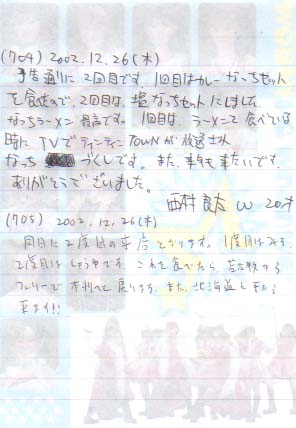 (704) 2002.12.26(木)
予告通りに2回目です。1回目はカレーなっちセット
を食セたので、2回目は、塩なっちセットにしました。
なっちラーメン最高です。1回目は、ラーメンを食べている
時にTVでティンティンTOWNが放送され
なっちづくしです。また、来年も来たいです。
ありがとうございました。
西村良太 20才
(705) 2002.12.26(木)
同日に2度目の来店となります。1度目はみそ、
2度目はしょうゆです。これを食べたら、苫小牧から
フェリーで本州へと戻ります。また、北海道に来たら
来ます!!